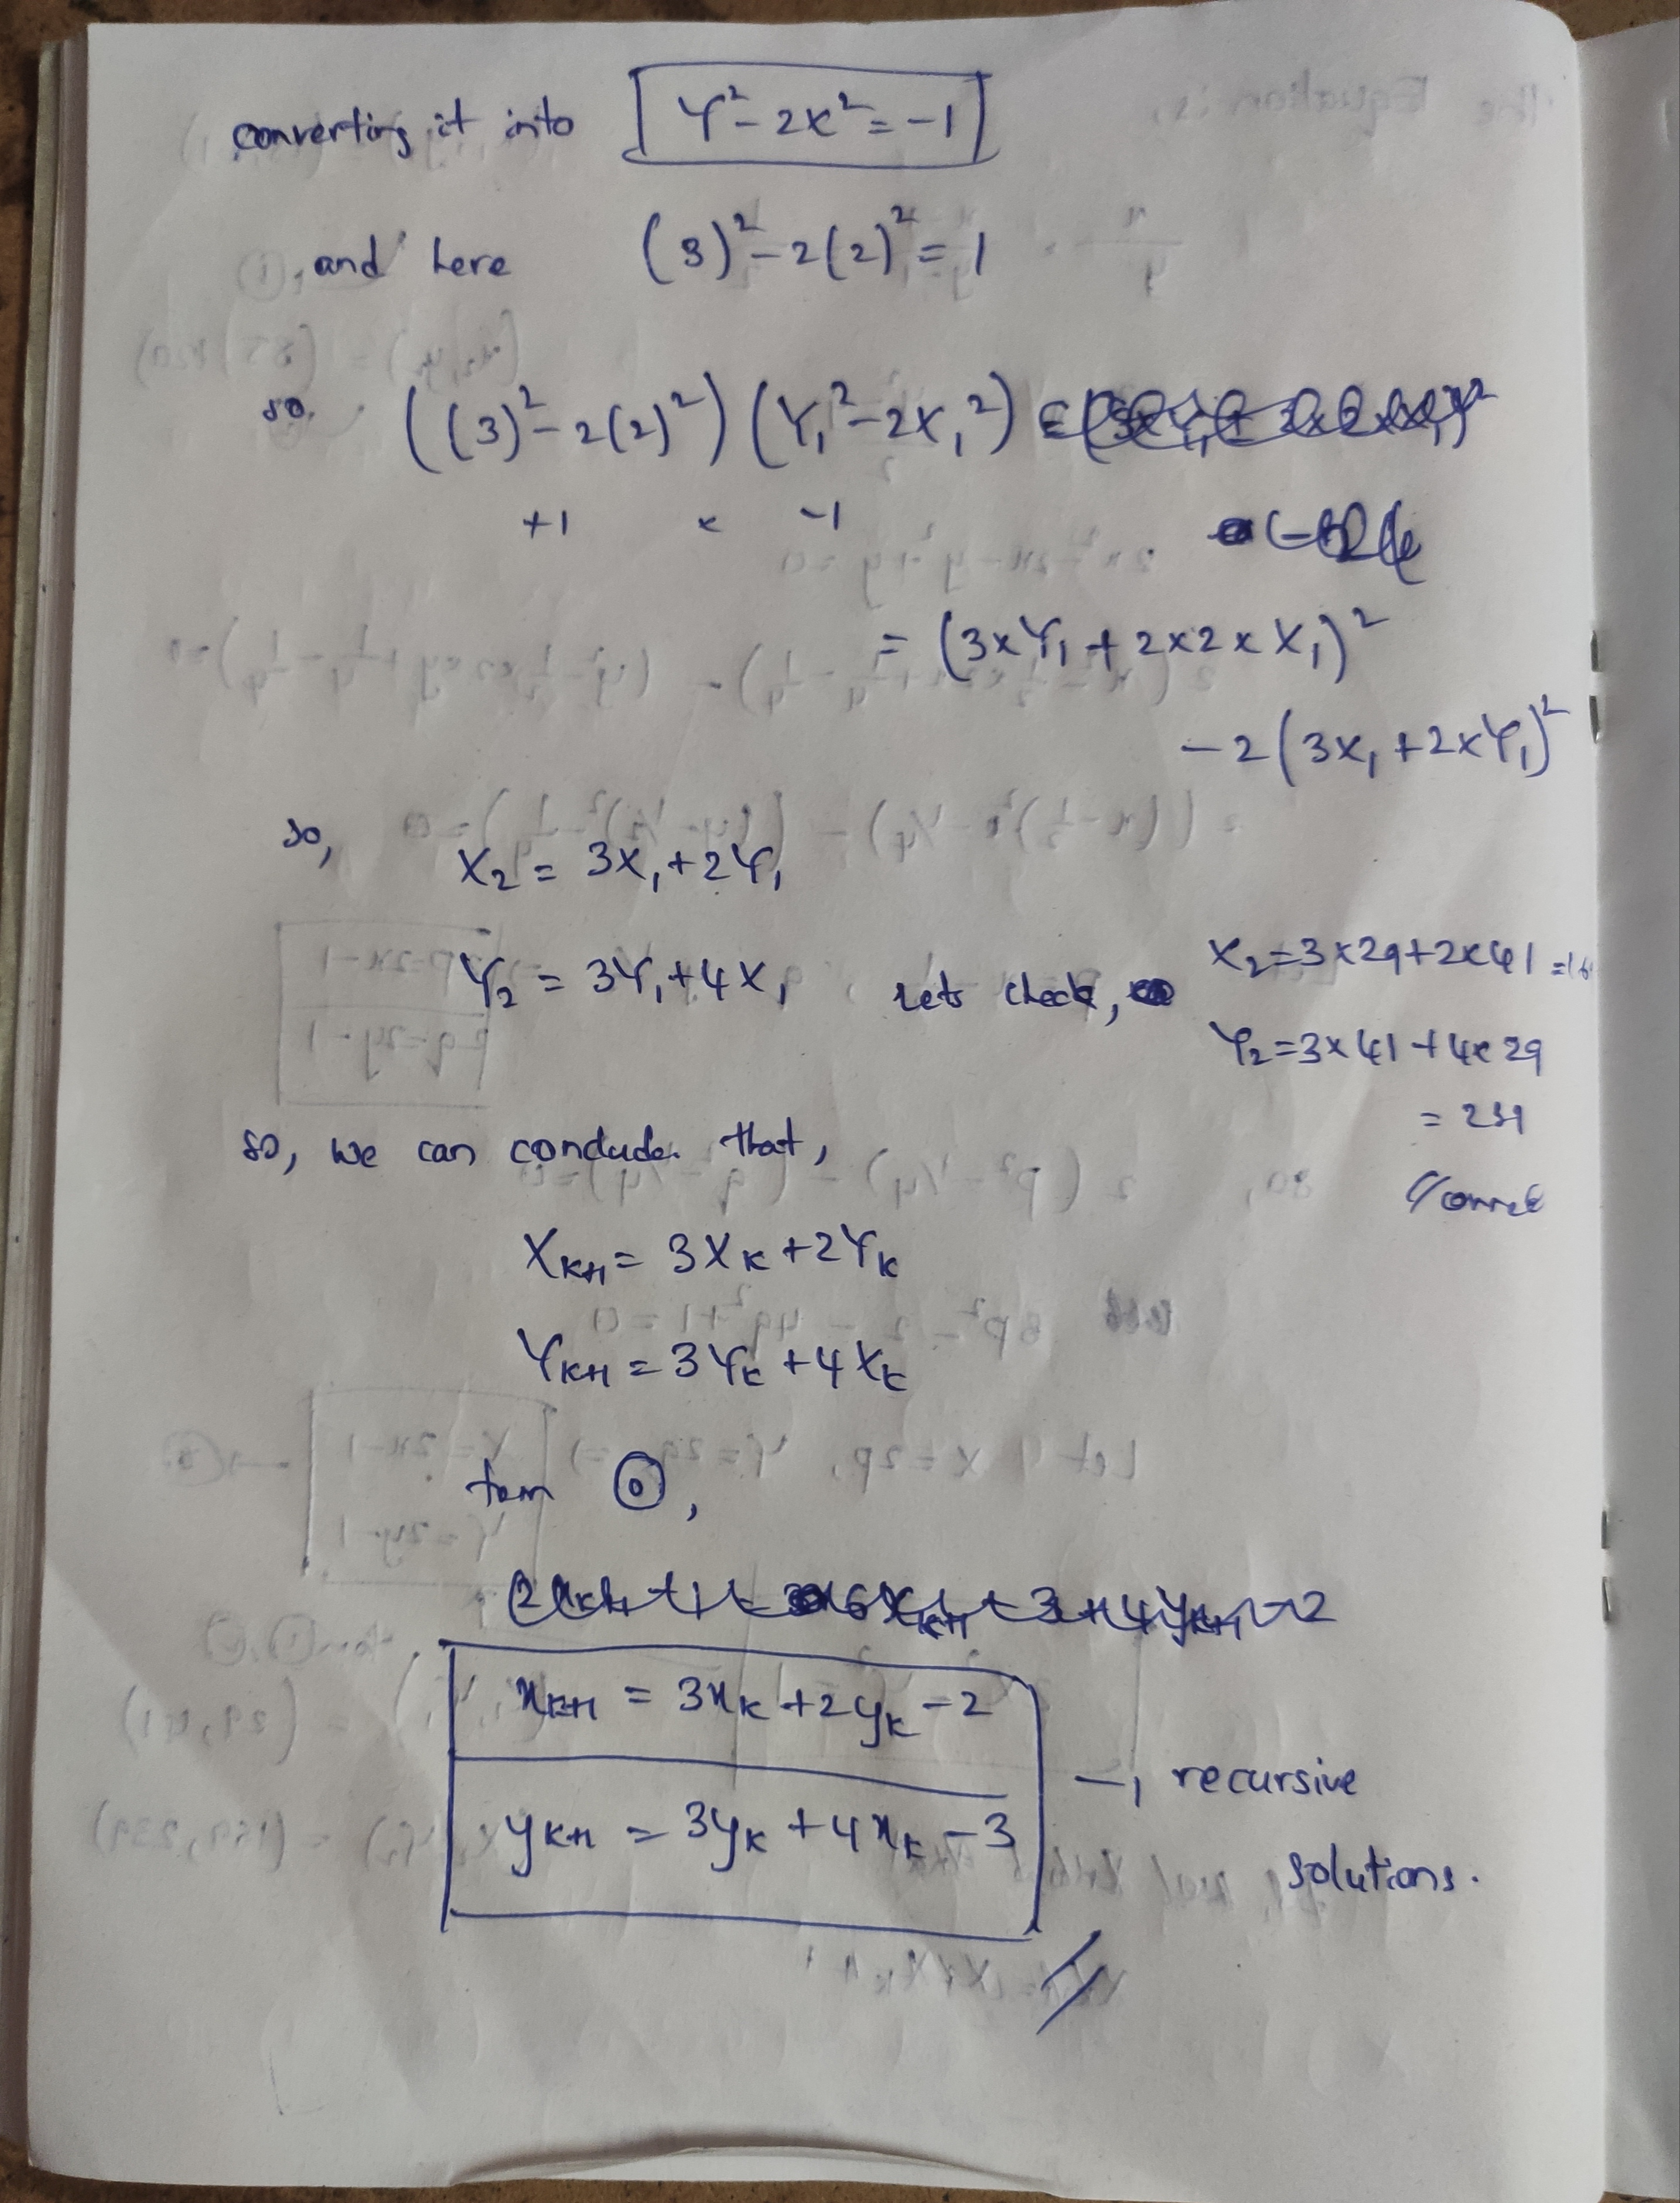 converting it into Y² - 2X² = -1
and here (3)² - 2(2)² = 1
so. ((3)² - 2(2)²) (Y₁² - 2X₁²)
+1 × -1
= (3×Y₁ + 2×2×X₁)²
- 2(3X₁ + 2×Y₁)²
so,
X₂ = 3X₁ + 2Y₁
Y₂ = 3Y₁ + 4X₁ Lets check, X₂ = 3×29 + 2×41
Y₂ = 3×41 + 4×29
= 239
so, we can conclude that,
Xₖ₊₁ = 3Xₖ + 2Yₖ
Yₖ₊₁ = 3Yₖ + 4Xₖ
⓪,
xₖ₊₁ = 3xₖ + 2yₖ - 2
yₖ₊₁ = 3yₖ + 4xₖ - 3
recursive
solutions.